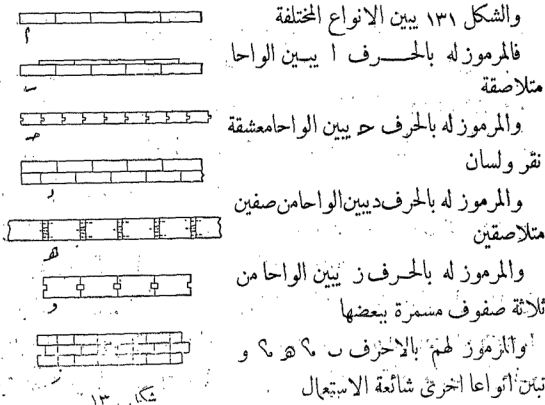 والشكل ١٣١ يبين الانواع المختلفة
فالمرموز له بالحرف ا يبين الواحا
متلاصقة
والمرموز له بالحرف ح يبين الواحا معشقة
نقر ولسان
والمرموز له بالحرف د يبين الواحا من صفين
متلاصقين
والمرموز له بالحرف ز يبين الواحا من
ثلاثة صفوف مسمرة ببعضها
والمرموز لهم بالاحرف ب ؟ هـ ؟ و
تبين انواعا اخرى شائعة الاستعمال
أ
ب
حـ
د
هـ
و
شكل ١٣